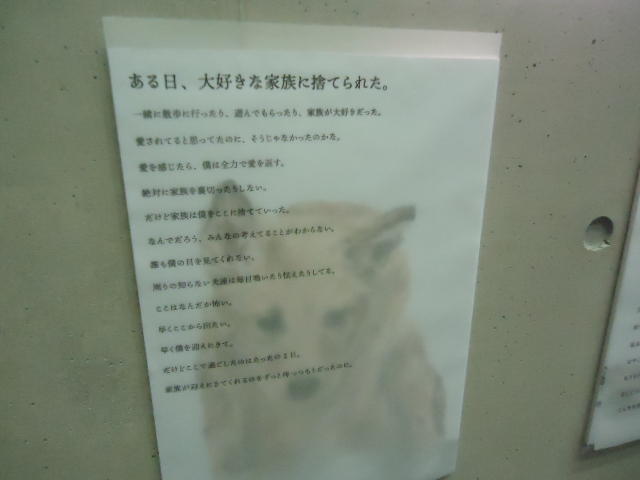 ある日、大好きな家族に捨てられた。
一緒に散歩に行ったり、遊んでもらったり、家族が大好きだった。
愛されてると思ってたのに、そうじゃなかったのかな。
愛を感じたら、僕は全力で愛を返す。
絶対に家族を裏切ったりしない。
だけど家族は僕をここに捨てていった。
なんでだろう、みんなの考えてることがわからない。
誰も僕の目を見てくれない。
周りの知らない犬達は毎日鳴いたり怯えたりしてる。
ここはなんだか怖い。
早くここから出たい。
早く僕を迎えにきて。
だけどここで過ごしたのはたったの2日。
家族が迎えにきてくれるのをずっと待つつもりだったのに。